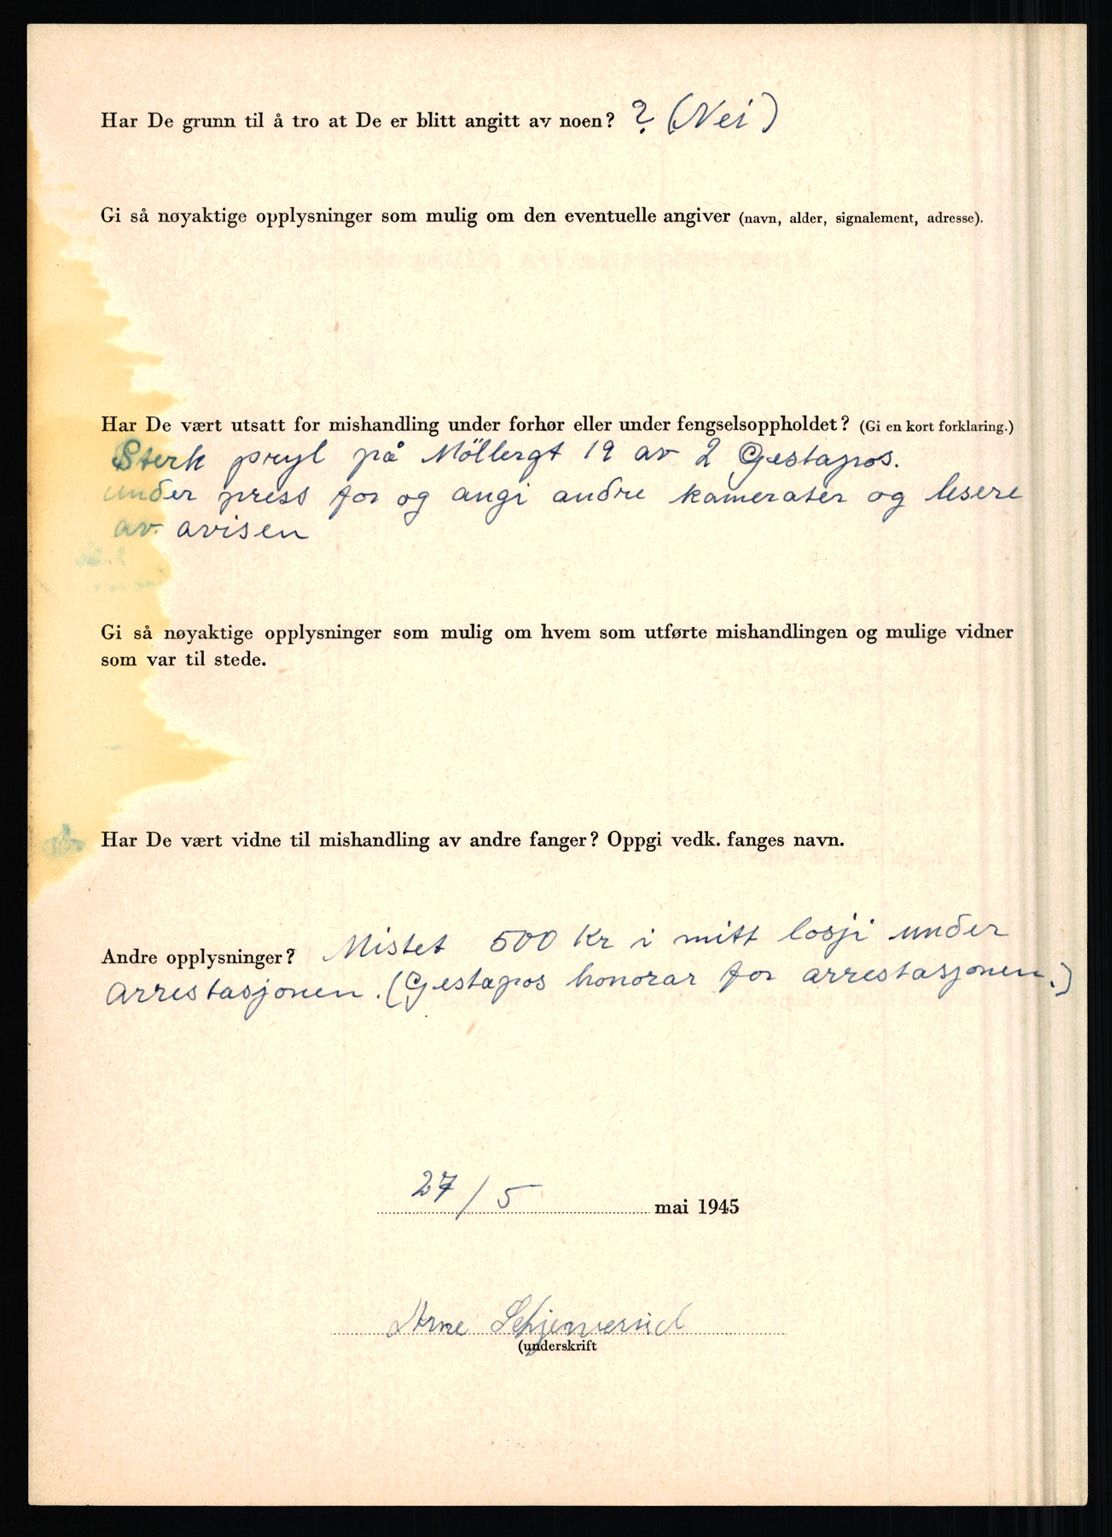 Har De grunn til å tro at De er blitt angitt av noen? ? (Nei)
Gi så nøyaktige opplysninger som mulig om den eventuelle angiver (navn, alder, signalement, adresse).
Har De vært utsatt for mishandling under forhør eller under fengselsoppholdet? (Gi en kort forklaring.)
Sterk pryl på Möllergt 19 av 2 Gestapos.
under press for og angi andre kamerater og lesere
av avisen
Gi så nøyaktige opplysninger som mulig om hvem som utførte mishandlingen og mulige vidner
som var til stede.
Har De vært vidne til mishandling av andre fanger? Oppgi vedk. fanges navn.
Andre opplysninger? Mistet 500 Kr i mitt losji under
Arrestasjonen. (Gestapos honorar for arrestasjonen.)
27/5 mai 1945
Arne
(underskrift